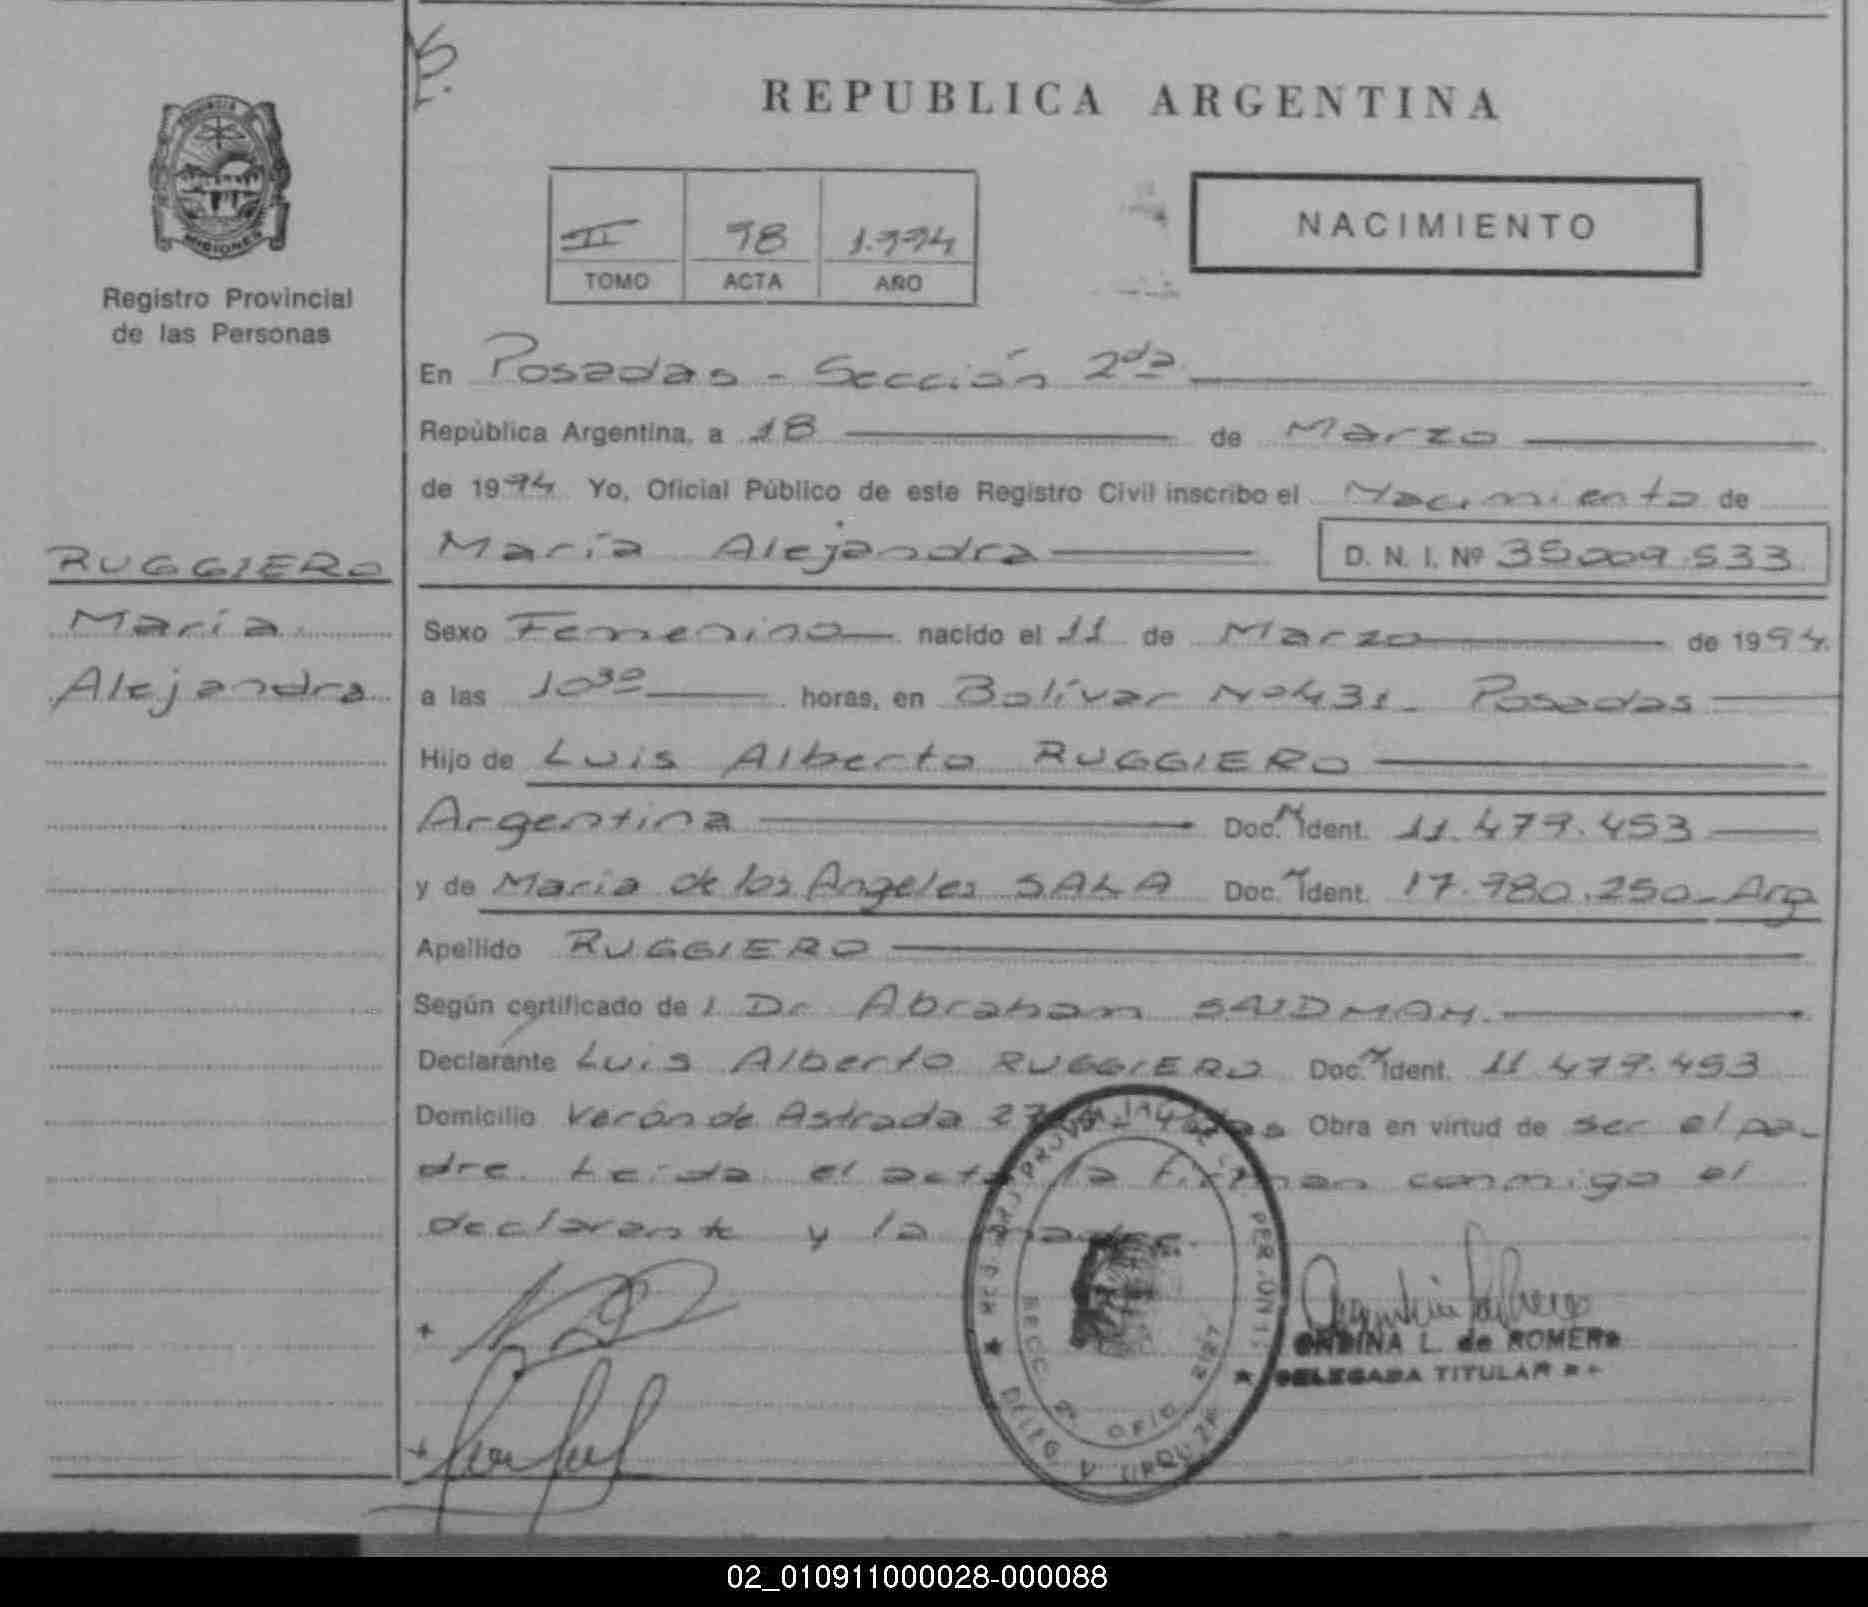 REPUBLICA ARGENTINA
PROVINCIA
MISIONES
Registro Provincial
de las Personas
II 98 1.994
TOMO ACTA AÑO
NACIMIENTO
En Posadas - Sección 2da
República Argentina, a 18 de Marzo
de 1994 Yo, Oficial Público de este Registro Civil inscribo el Nacimiento de
María Alejandra
D. N. I. Nº 35009.533
RUGGIERO
María
Alejandra
Sexo Femenino nacido el 11 de Marzo de 1994
a las 10 30 horas, en Bolívar Nº 431 - Posadas
Hijo de Luis Alberto RUGGIERO
Argentina Doc. Ident. 11.479.453
y de María de los Angeles SALA Doc. Ident. 17.980.250 - Arg
Apellido RUGGIERO
Según certificado de l Dr Abraham SAIDMAN.
Declarante Luis Alberto RUGGIERO Doc. Ident. 11 479.453
Domicilio Verón de Astrada Obra en virtud de ser el pa-
dre. Leida el acta la firman conmigo el
declarante y la madre.
SECC. 2ª OFIC. 2127
DELEG. V. URQUIZA
ONDINA L. de ROMERO
DELEGADA TITULAR
02_010911000028-000088